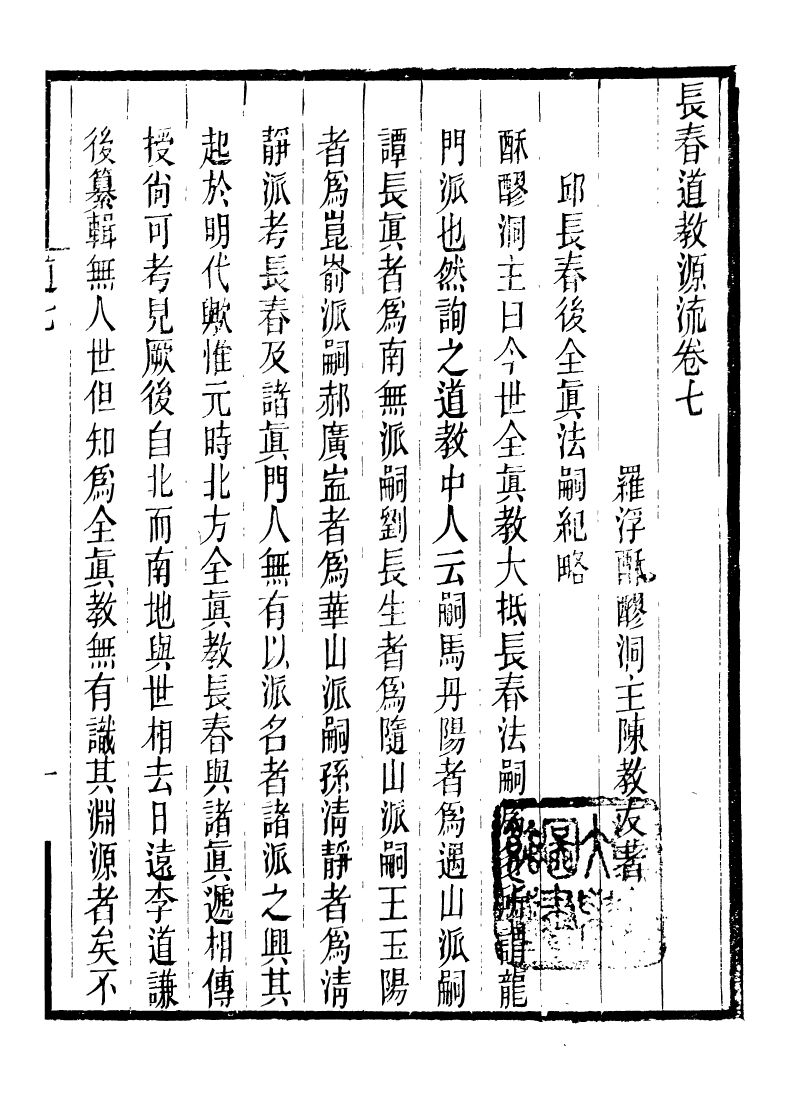 長春道教源流卷七
羅浮酥醪洞主陳教友著
邱長春後全眞法嗣紀略
酥醪洞主曰今世全眞教大抵長春法嗣爲多所謂龍
門派也然詢之道教中人云嗣馬丹陽者爲遇山派嗣
譚長眞者爲南無派嗣劉長生者爲隨山派嗣王玉陽
者爲崑嵛派嗣郝廣寍者爲華山派嗣孫清靜者爲清
靜派考長春及諸眞門人無有以派名者諸派之興其
起於明代歟惟元時北方全眞教長春與諸眞遞相傳
授尙可考見厥後自北而南地與世相去日遠李道謙
後纂輯無人世但知爲全眞教無有識其淵源者矣不
一